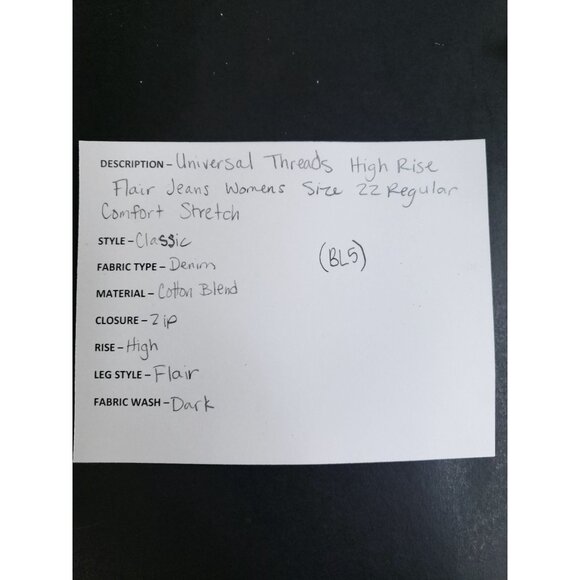 DESCRIPTION – Universal Threads High Rise
Flair Jeans Womens Size 22 Regular
Comfort Stretch
STYLE – Classic
FABRIC TYPE – Denim
(BL5)
MATERIAL – Cotton Blend
CLOSURE – Zip
RISE – High
LEG STYLE – Flair
FABRIC WASH – Dark